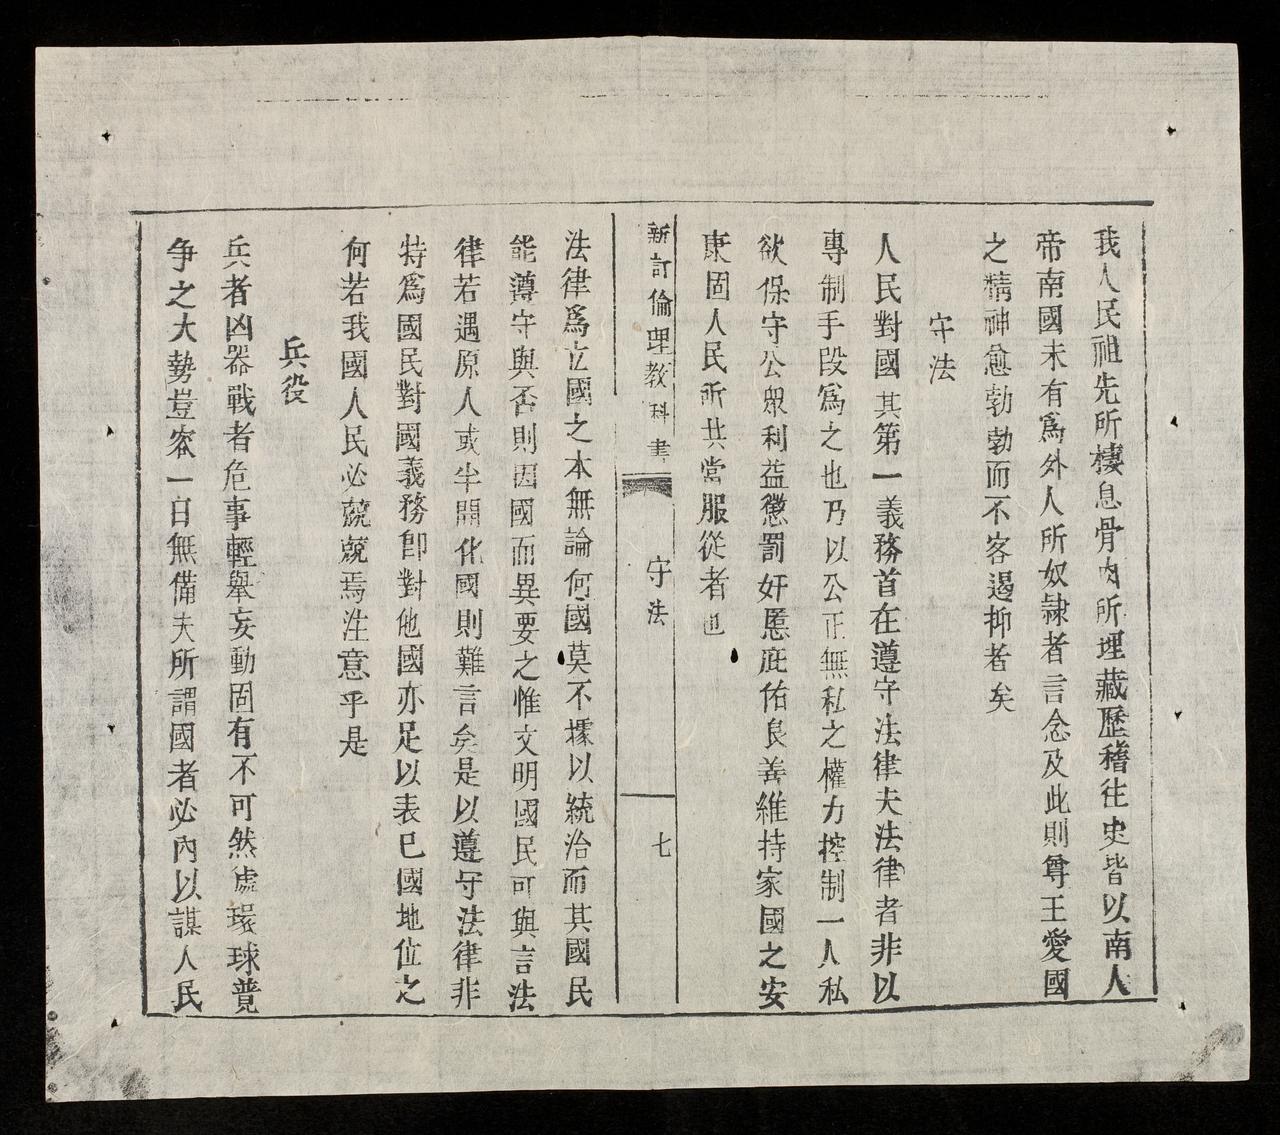 我人民祖先所棲息骨肉所埋藏歷稽往史皆以南人
帝南國未有爲外人所奴隸者言念及此則尊王愛國
之精神愈勃勃而不容遏抑者矣
守法
人民對國其第一義務首在遵守法律夫法律者非以
專制手段爲之也乃以公正無私之權力控制一人私
欲保守公眾利益懲罰奸慝庇佑良善維持家國之安
康固人民所共當服從者也
新訂倫理教科書
守法
七
法律爲立國之本無論何國莫不據以統治而其國民
能遵守與否則因國而異要之惟文明國民可與言法
律若遇原人或半開化國則難言矣是以遵守法律非
特爲國民對國義務卽對他國亦足以表己國地位之
何若我國人民必兢兢焉注意乎是
兵役
兵者凶器戰者危事輕舉妄動固有不可然處環球競
争之大勢豈容一日無備夫所謂國者必內以謀人民